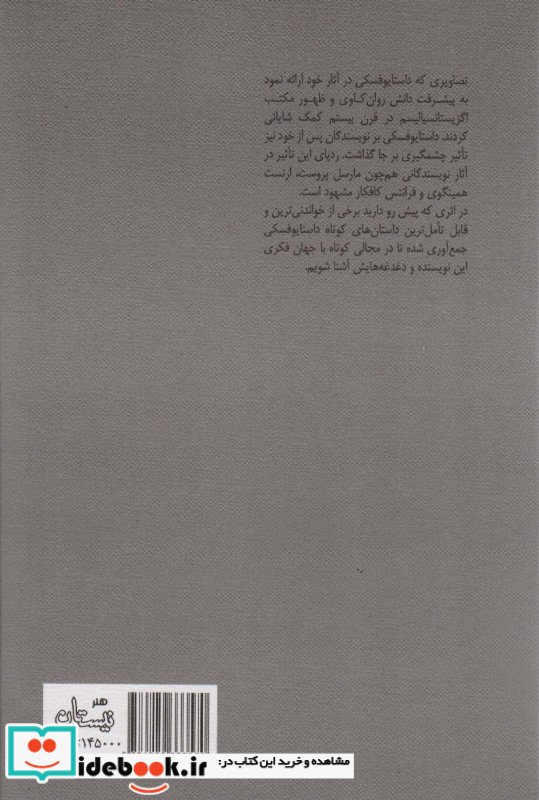 تصاویری که داستایوفسکی در آثار خود ارائه نمود
به پیشرفت دانش روان‌کاوی و ظهور مکتب
اگزیستانسیالیسم در قرن بیستم کمک شایانی
کردند. داستایوفسکی بر نویسندگان پس از خود نیز
تأثیر چشمگیری بر جا گذاشت. ردپای این تأثیر در
آثار نویسندگانی هم‌چون مارسل پروست، ارنست
همینگوی و فرانتس کافکار مشهود است.
در اثری که پیش رو دارید برخی از خواندنی‌ترین و
قابل تأمل‌ترین داستان‌های کوتاه داستایوفسکی
جمع‌آوری شده تا در مجالی کوتاه با جهان فکری
این نویسنده و دغدغه‌هایش آشنا شویم.
هنر
نیستان
۱۴۵۰۰۰
مشاهده و خرید این کتاب در:
idebook.ir